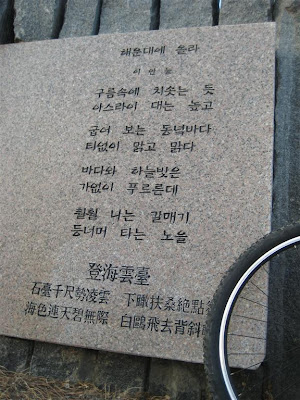 해운대에 올라
이 안 눌
구름속에 치솟는 듯
아스라이 대는 높고
굽어 보는 동녘바다
티없이 맑고 맑다
바다와 하늘빛은
가없이 푸르른데
훨훨 나는 갈매기
등너머 타는 노을
登海雲臺
石臺千尺勢凌雲 下瞰扶桑絶點
海色連天碧無際 白鷗飛去背斜